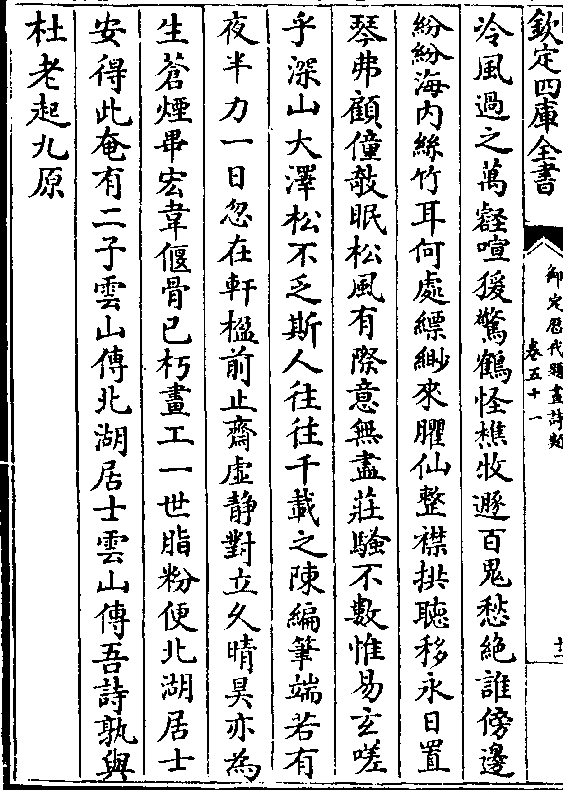 欽定四庫全書
御定歷代題畫詩類
卷五十一
十二
泠風過之萬壑喧猨驚鶴怪樵牧遯百鬼愁絶誰傍邊
紛紛海内絲竹耳何處縹緲來臞仙整襟拱聽移永日置
琴弗顧僮敧眠松風有際意無盡莊騷不數惟易玄嗟
乎深山大澤松不乏斯人往往千載之陳編筆端若有
夜半力一日忽在軒楹前止齋虚静對立久晴昊亦為
生蒼煙畢宏韋偃骨已朽畫工一世脂粉便北湖居士
安得此奄有二子雲山傳北湖居士雲山傳吾詩孰與
杜老起九原